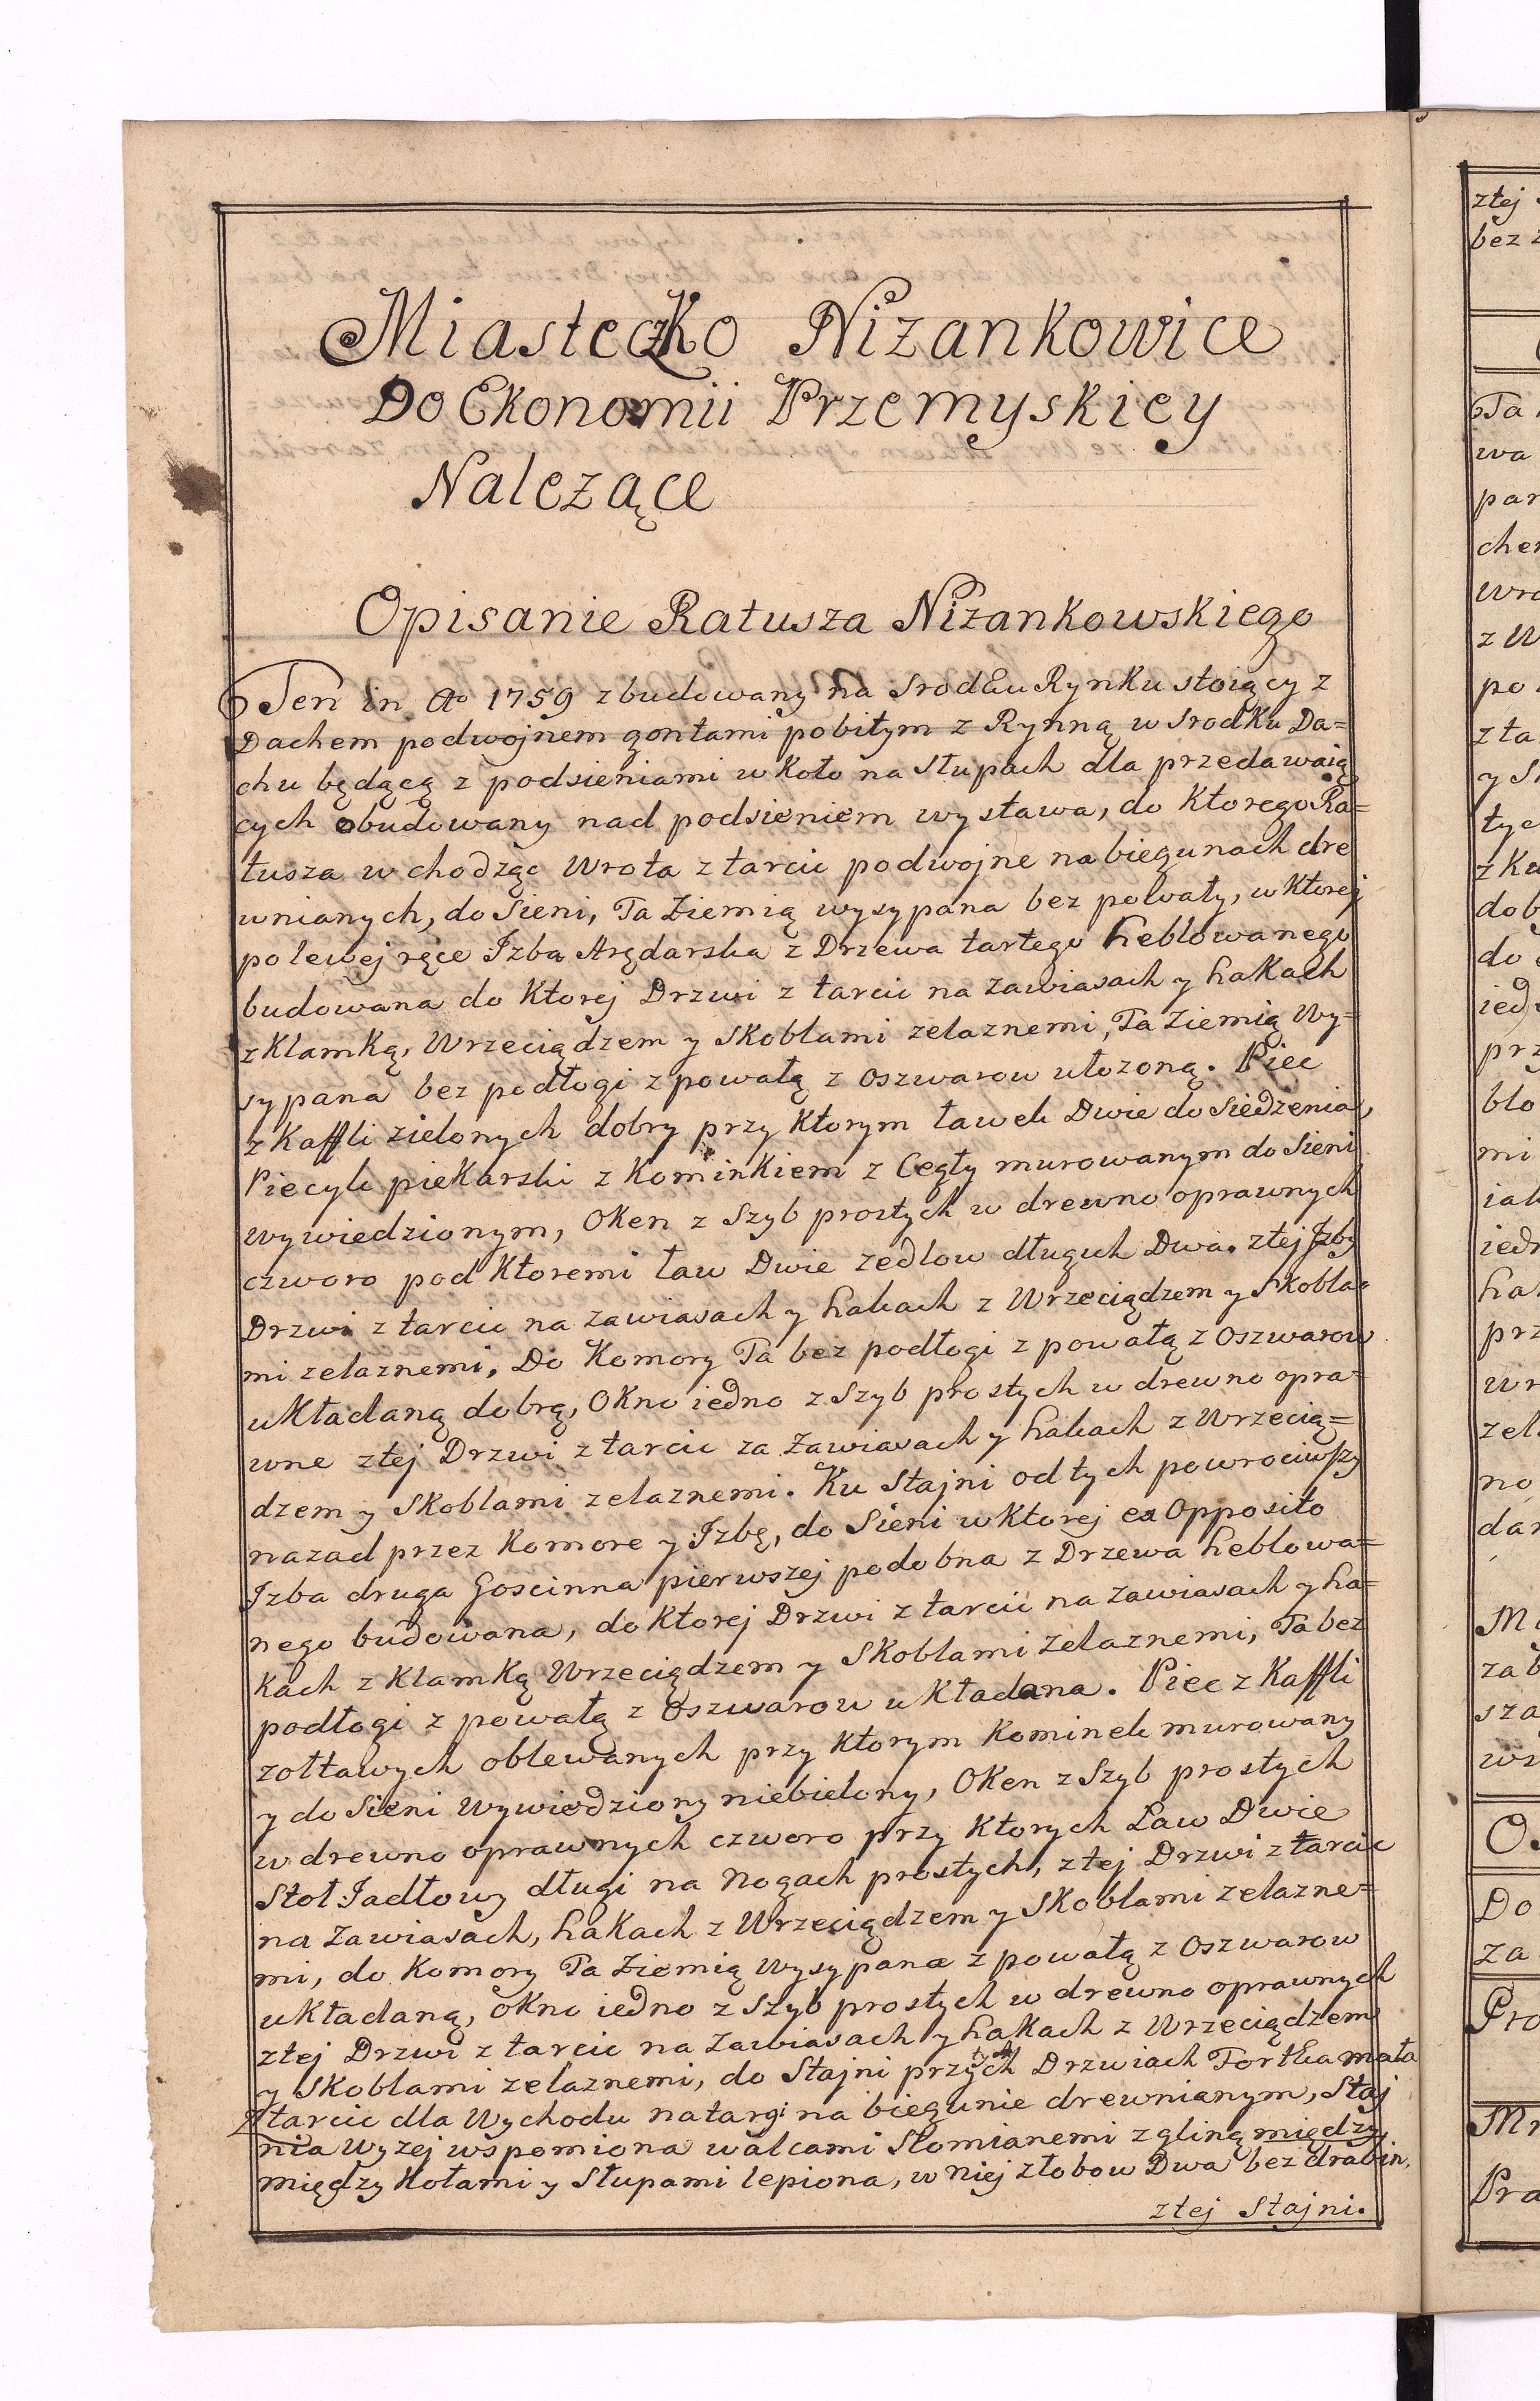 Miasteczko Niżankowice
Do Ekonomii Przemyskiey
Należące
Opisanie Ratusza Niżankowskiego
Ten in Ao 1759 zbudowany na Srodku Rynku stoiący z
Dachem podwojnem gontami pobitym z Rynną w srodku Da=
chu będącą z podsieniami w koło na Słupach dla przedawaią
cych obudowany nad podsieniem wystawa, do Ktorego Ra=
tusza wchodząc Wrota z tarcic podwojne na biegunach dre
wnianych, do Sieni, Ta Ziemią wysypana bez powały, w Ktorej
po lewej ręce Izba Arędarska z Drzewa tartego heblowanego
budowana do Ktorej Drzwi z tarcic na zawiasach y hakach
z Klamką, Wrzeciądzem y Skoblami zelaznemi, Ta Ziemią Wy=
sypana bez podłogi z powałą z oszwarow ułozoną. Piec
z Kaffli zielonych dobry przy Ktorym ławek Dwie do Siedzenia,
Piecyk piekarski z Kominkiem z Cegły murowanym do Sieni
wywiedzionym, Oken z Szyb prostych w drewno oprawnych
czworo pod Ktoremi ław Dwie zedlow długich Dwa. z tej Izby
Drzwi z tarcic na zawiasach y hakach z Wrzeciądzem y Skobla=
mi zelaznemi, Do Komory Ta bez podłogi z powałą z Oszwarow
układaną dobrą, Okno iedno z Szyb prostych w drewno opra=
wne z tej Drzwi z tarcic za Zawiasach y hakach z Wrzecią=
dzem y Skoblami zelaznemi. Ku Stajni od tych powrociwszy
nazad przez Komore y Izbę, do Sieni w Ktorej ex Opposito
Izba druga Goscinna pierwszej podobna z Drzewa heblowa=
nego budowana, do Ktorej Drzwi z tarcic na zawiasach y ha=
kach z Klamką Wrzeciądzem y Skoblami Zelaznemi, Ta bez
podłogi z powałą z Oszwarow układana. Piec z Kaffli
zołtawych oblewanych przy Ktorym Kominek murowany
y do Sieni Wywiedziony niebielony, Oken z Szyb prostych
w drewno oprawnych czworo przy Ktorych Law Dwie
Stoł Jadłowy długi na Nogach prostych, z tej Drzwi z tarcic
na Zawiasach, hakach z Wrzeciądzem y Skoblami zelazne=
mi, do Komory Ta Ziemią Wysypana z powałą z Oszwarow
układaną, okno iedno z Szyb prostych w drewno oprawnych
z tej Drzwi z tarcic na Zawiasach y hakach z Wrzeciądzem
y Skoblami zelaznemi, do Stajni przy tych Drzwiach Fortka mała
z tarcic dla Wychodu na targi na biegunie drewnianym, Staj
nia wyzej wspomiona walcami Słomianemi z gliną między
między Kołami y Słupami lepiona, w niej złobow Dwa bez drabin.
z tej Stajni.
ztej
bez
Ta
wa
par
cher
z W
po
z ta
y S
tyc
z Ka
do
iedn
prz
blo
mi
iak
ha
prz
zel
no
dar
sza
Do
za
Pro
Pra